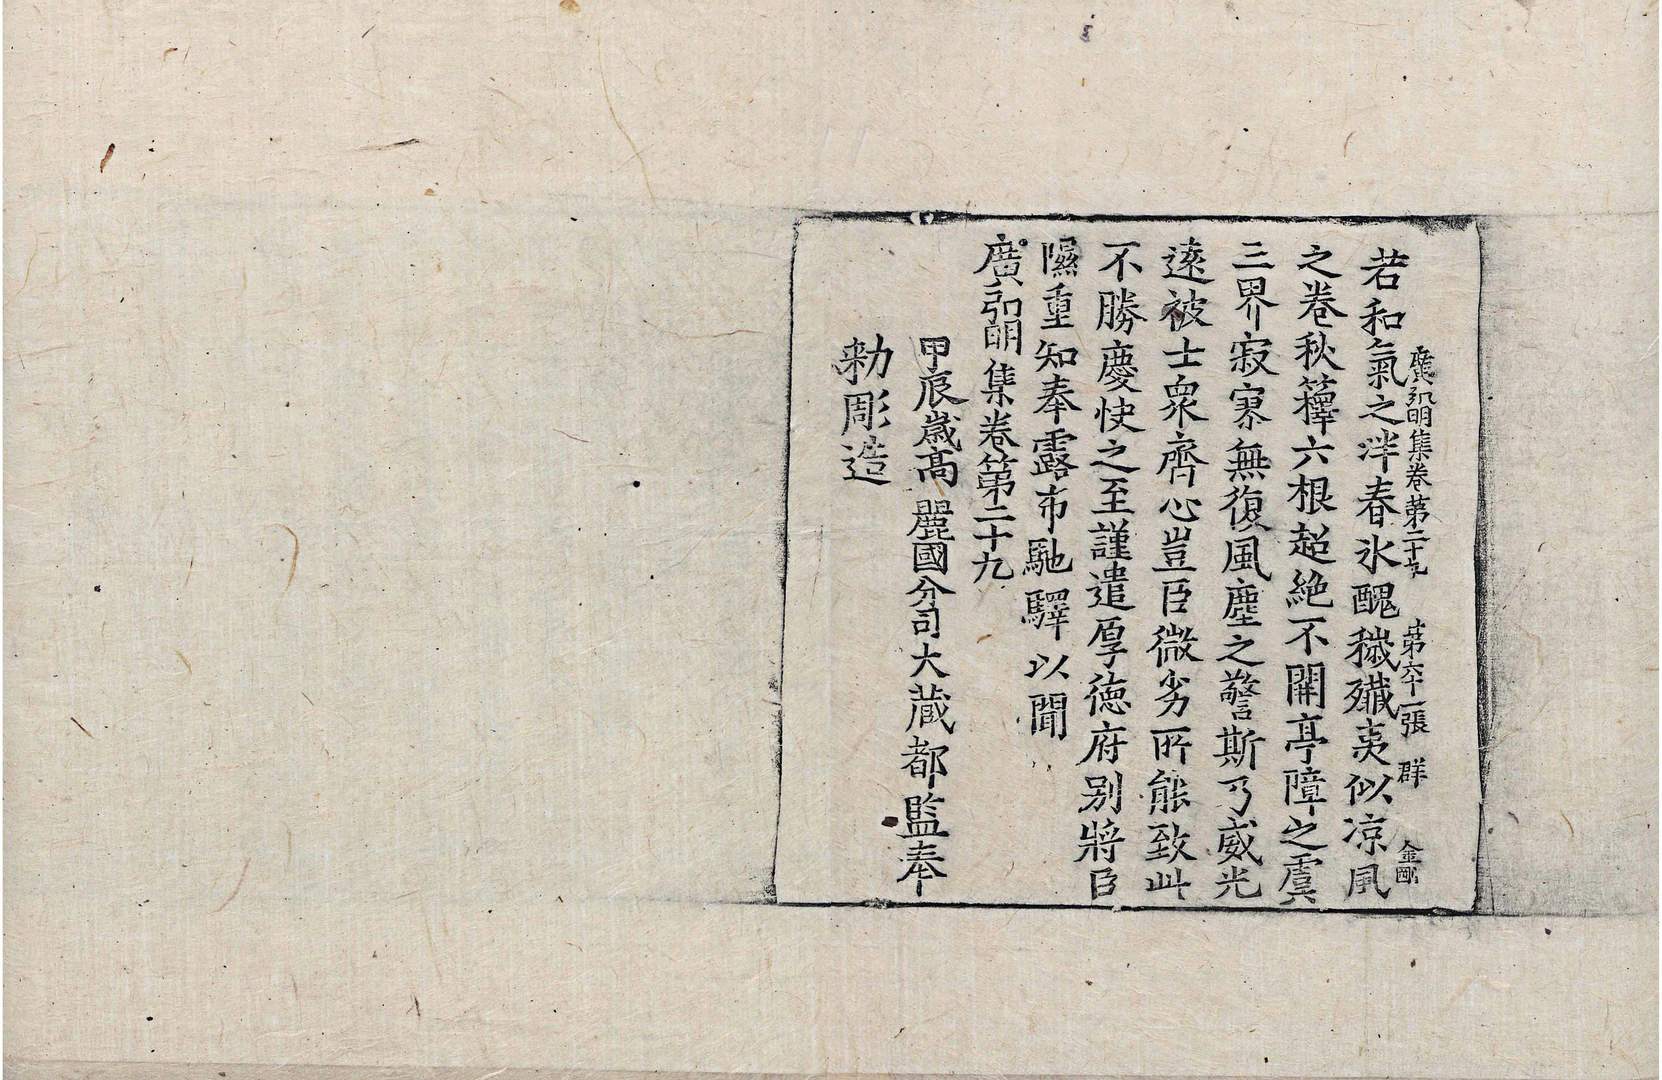 廣弘明集卷第二十九 第六十一張 群 金剛
若和氣之泮春氷醜穢殲夷似凉風
之卷秋蘀六根超絶不開亭障之虞
三界寂寥無復風塵之警斯乃威光
遠被士衆齊心豈臣微劣所能致此
不勝慶快之至謹遣厚德府別將臣
隰重知奉露布馳驛以聞
廣弘明集卷第二十九
甲辰歲高麗國分司大藏都監奉
勑彫造